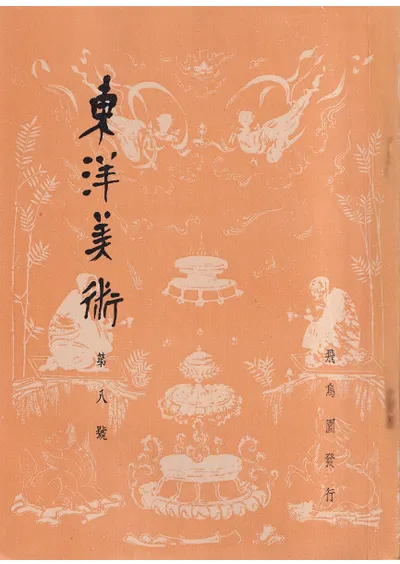 東洋美術
第八號
飛鳥園發行